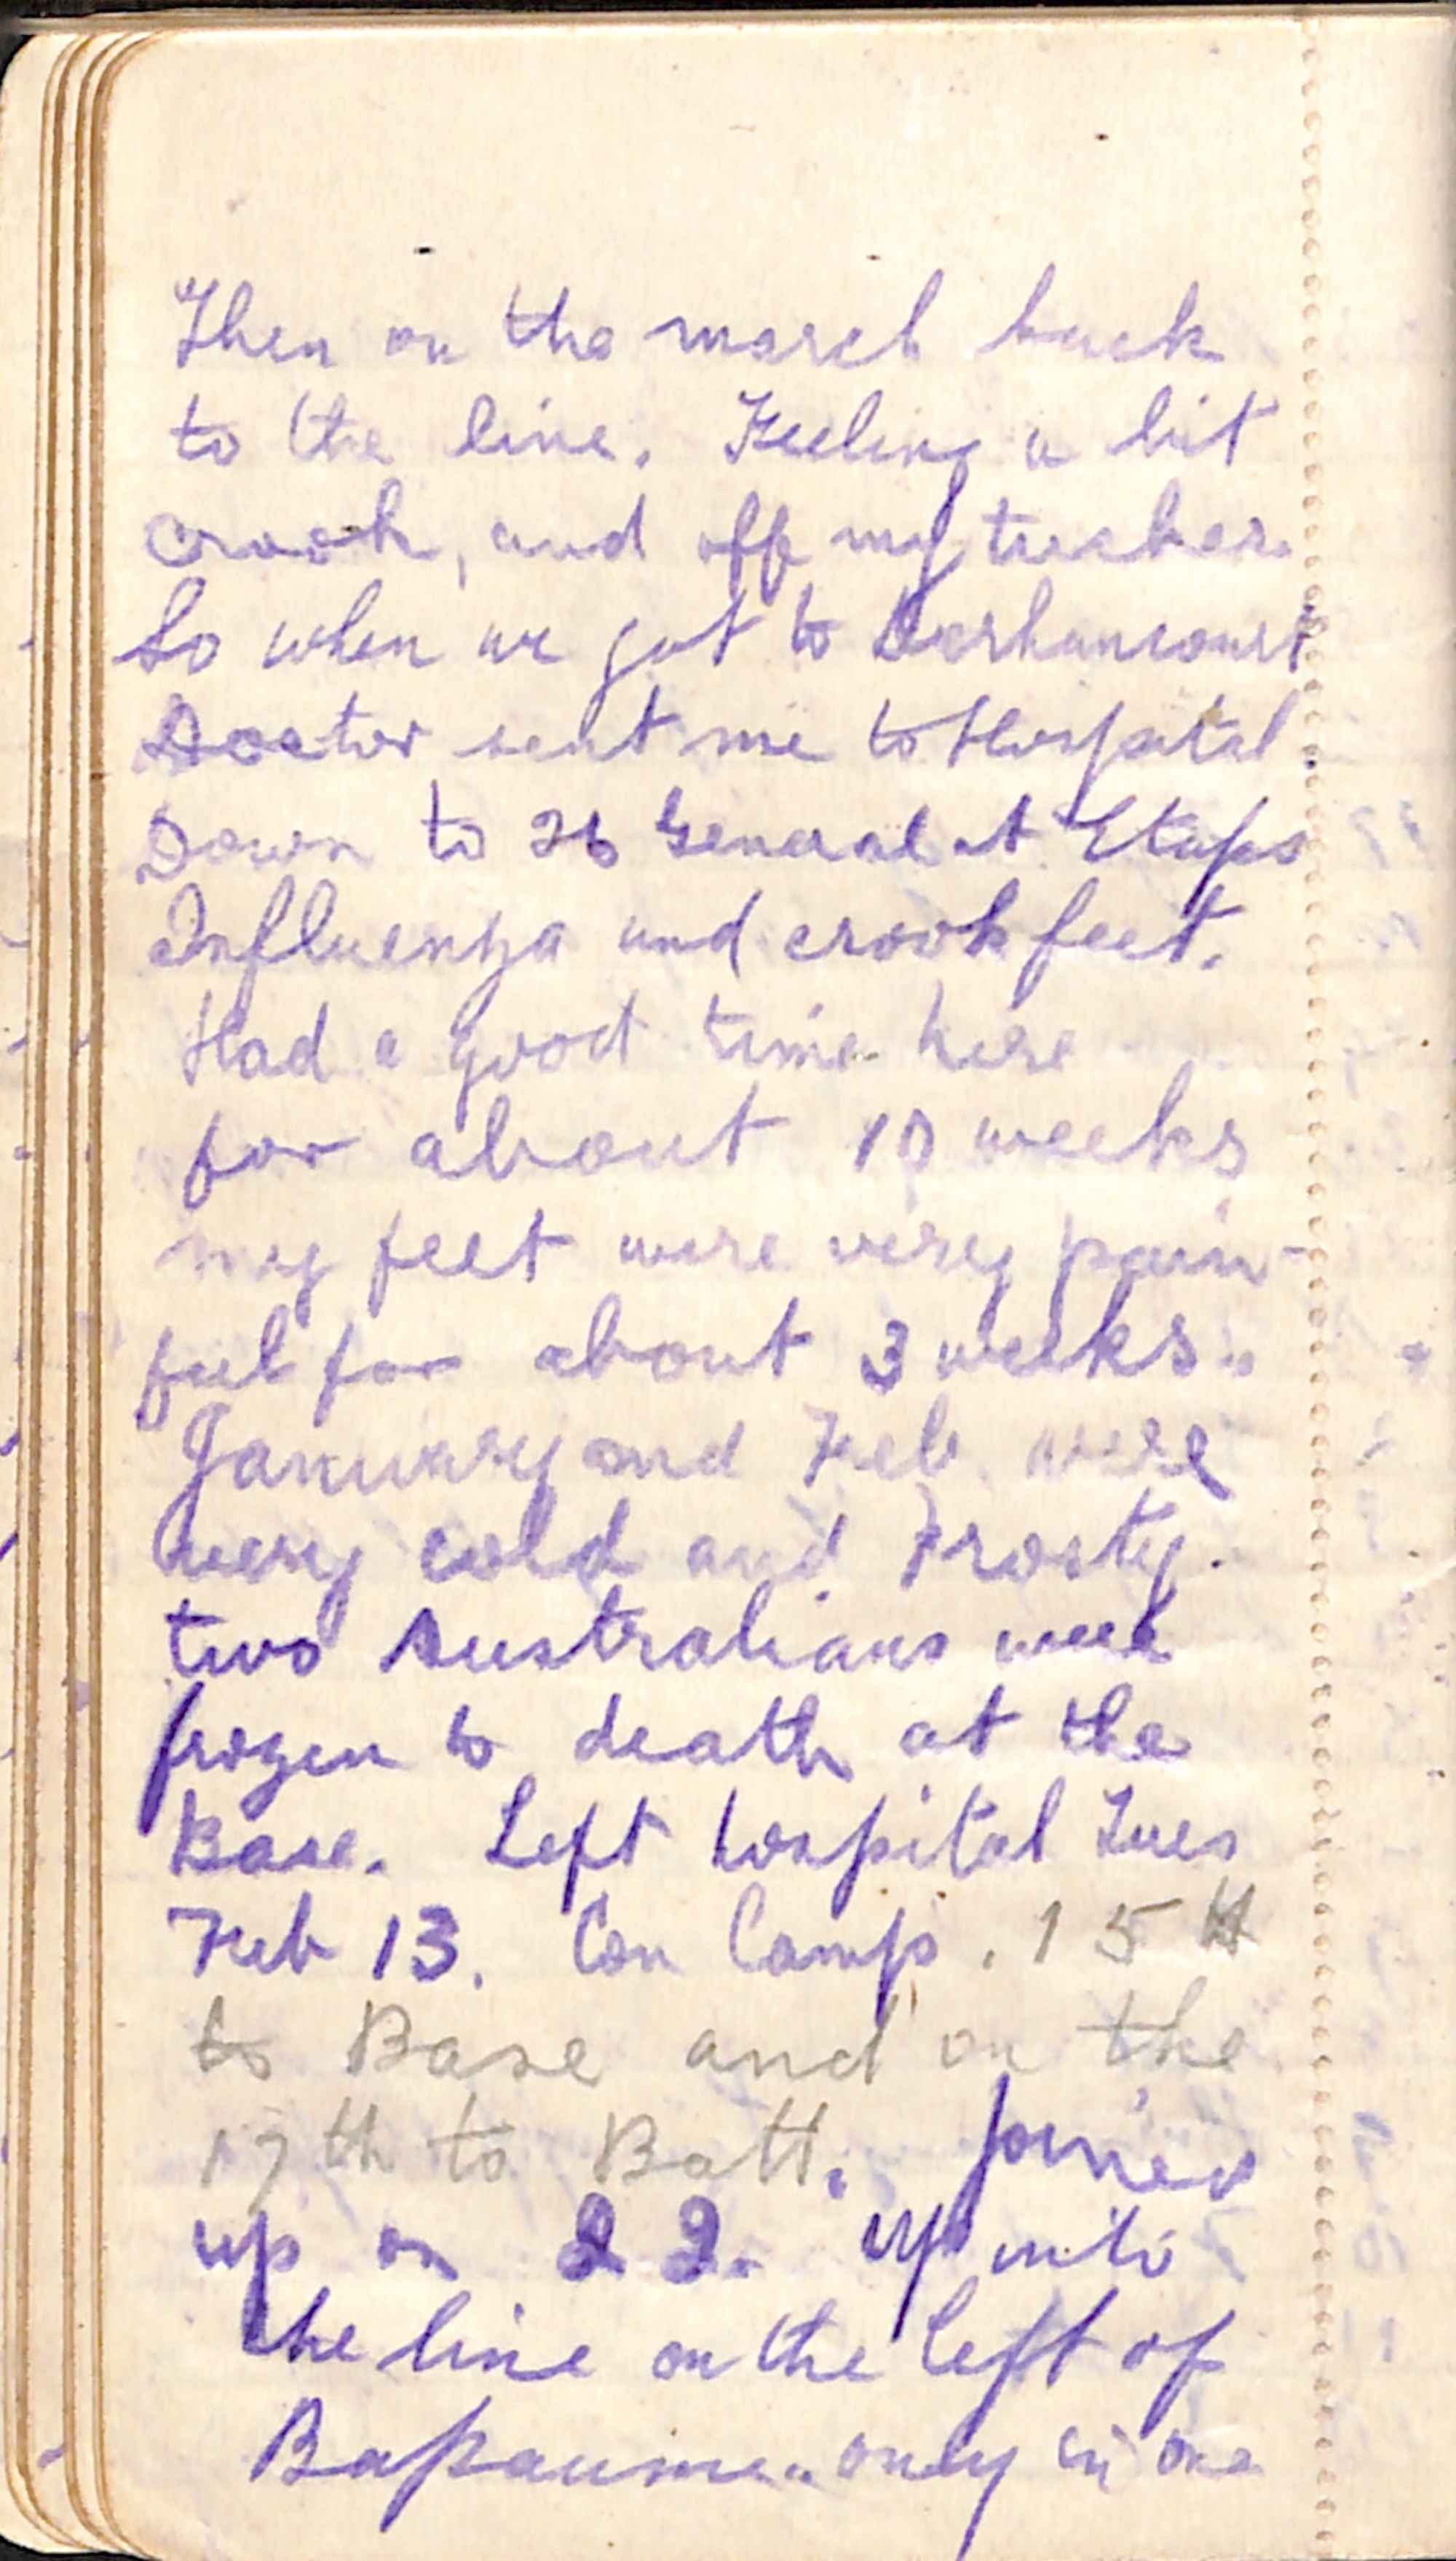 Then on the march back
to the line. Feeling a bit
crook, and off my tucker.
So when we got to Derhancourt
Doctor sent me to Hospital
Down to 26 General at Etaps
Influenza and crook feet.
Had a good time here
for about 10 weeks
my feet were very pain-
ful for about 3 weeks.
January and Feb. were
very cold and Frosty.
two Australians were
frozen to death at the
Base. Left hospital Tues
Feb 13. Con Camp. 15th
to Base and on the
17th to Batt. joined
up on 22. up into
the line on the left of
Bapaume. only in one